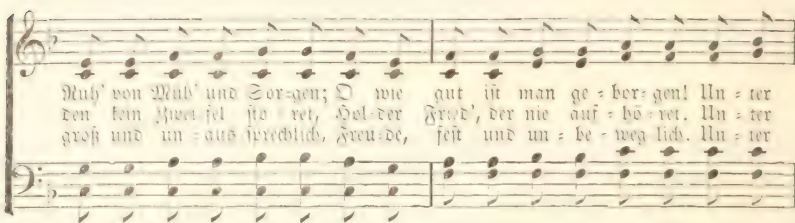 Ruh' von Müh' und Sor-gen; O wie gut ist man ge-bor-gen! Un-ter
den kein Zwei-fel stö-ret, Hol-der Fried', der nie auf-hö-ret. Un-ter
groß und un-aus sprechlich, Freu-de, fest und un-be-weg lich. Un-ter